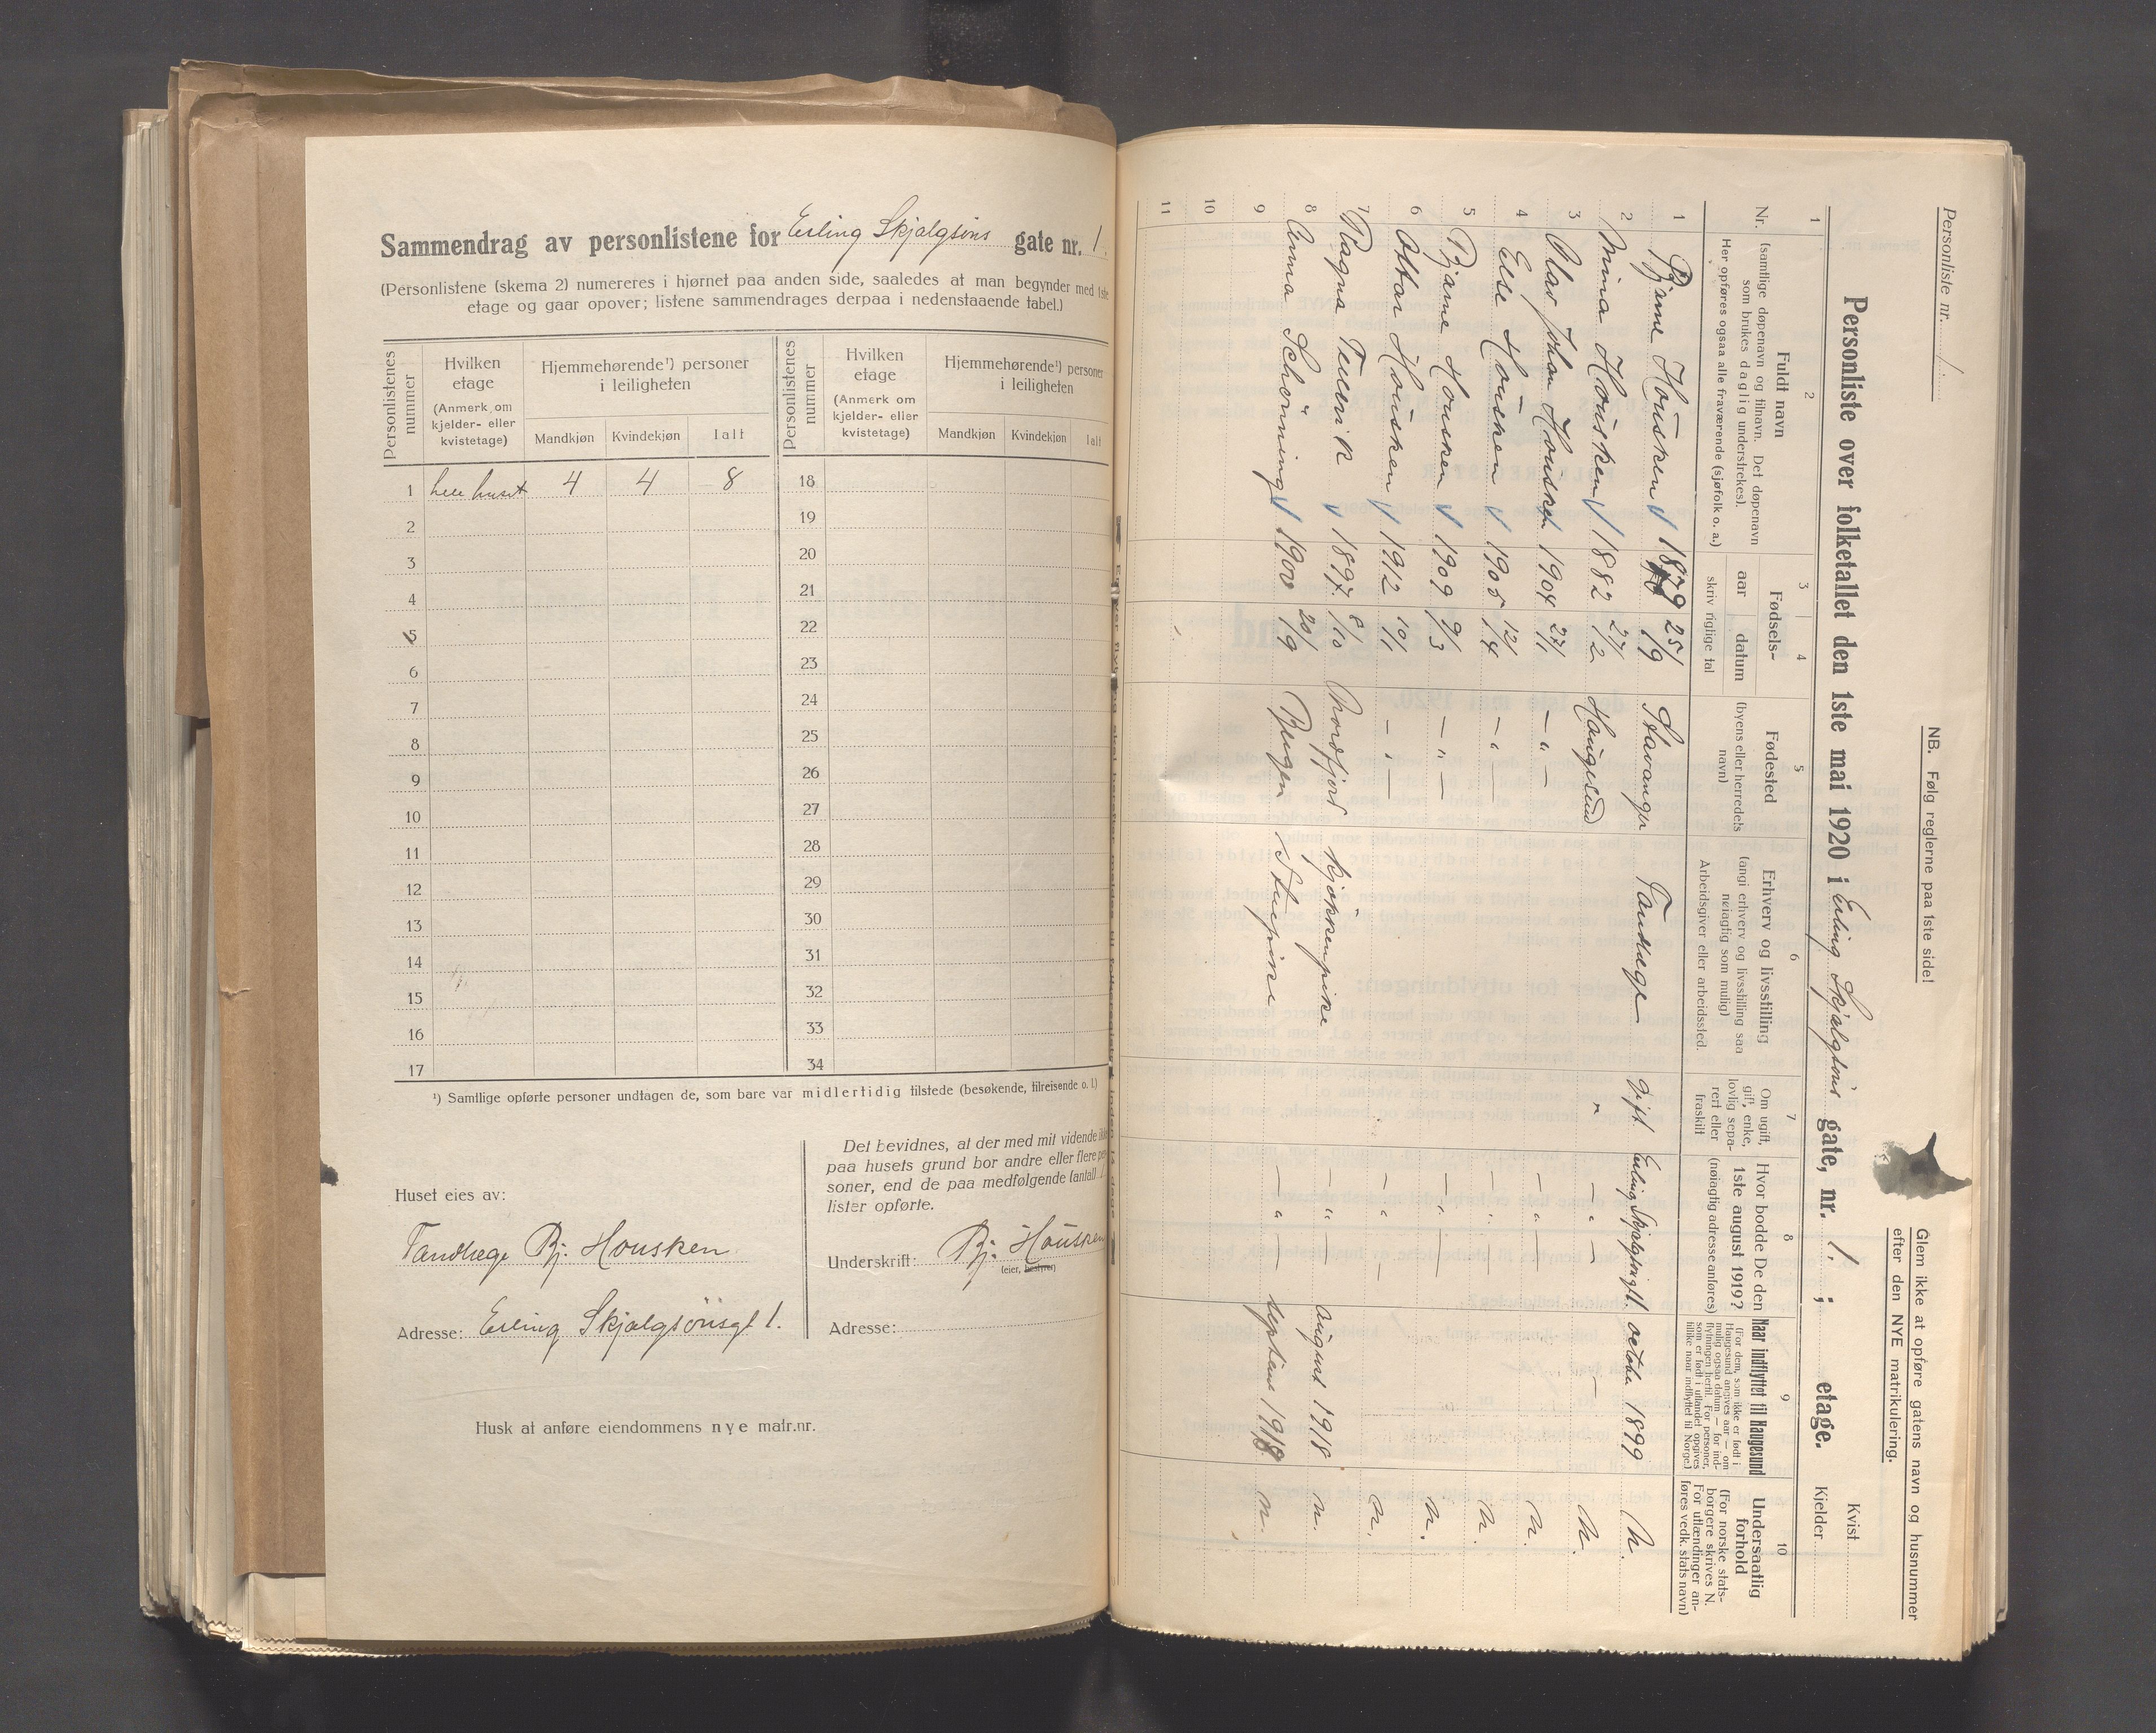 Sammendrag av personlistene for Erling Skjalgsöns gate nr. 1.
(Personlistene (skema 2) numereres i hjørnet paa anden side, saaledes at man begynder med 1ste
etage og gaar opover; listene sammendrages derpaa i nedenstaaende tabel.)
Personlistenes nummer
Hvilken etage
(Anmerk om kjelder- eller kvistetage)
Hjemmehørende¹) personer i leiligheten
Mandkjøn Kvindekjøn Ialt
Personlistenes nummer
Hvilken etage
(Anmerk om kjelder- eller kvistetage)
Hjemmehørende¹) personer i leiligheten
Mandkjøn Kvindekjøn Ialt
1 hele huset 4 4 8 18
2 19
3 20
4 21
5 22
6 23
7 24
8 25
9 26
10 27
11 28
12 29
13 30
14 31
15 32
16 33
17 34
¹) Samtlige opførte personer undtagen de, som bare var midlertidig tilstede (besøkende, tilreisende o. l.)
Huset eies av:
Tandlæge Bj. Housken
Adresse: Erling Skjalgsönsgt 1.
Det bevidnes, at der med mit vidende ikke
paa husets grund bor andre eller flere per
soner, end de paa medfølgende (antall) 1
lister opførte.
Underskrift: Bj. Housken
(eier, bestyrer)
Adresse:
Husk at anføre eiendommens nye matr.nr.
Personliste nr. 1.
NB. Følg reglerne paa 1ste side!
Glem ikke at opføre gatens navn og husnummer
efter den NYE matrikulering.
Personliste over folketallet den 1ste mai 1920 i Erling Skjalgsöns gate, nr. 1. ; etage.
Kvist
Kjelder
1 2 3 4 5 6 7 8 9 10
Nr.
Fuldt navn
(samtlige døpenavn og tilnavn. Det døpenavn
som brukes daglig understrekes).
Her opføres ogsaa alle fraværende (sjøfolk o. a.)
Fødsels-
aar datum
skriv riglige tal
Fødested
(byens eller herredets
navn)
Erhverv og livsstilling
(angi erhverv og livsstilling saa
nøiagtig som mulig)
Arbeidsgiver eller arbeidssted.
Om ugift,
gift, enke,
lovlig sepa-
rert eller
fraskilt
Hvor bodde De den
1ste august 1919?
(nøiagtig adresse anføres)
Naar indflyttet til Haugesund
(For dem, som ikke er født i
Haugesund angives aar — om
mulig ogsaa datum — for ind-
flytningen hertil. For personer,
som er født i utlandet opgives
tillike naar indflyttet til Norge.)
Undersaatlig
forhold
(For norske stats-
borgere skrives N.
For utlændinger an-
føres vedk. stats navn)
1 Bjarne Housken 1879 25/9 Stavanger Tandlæge Gift Erling Skjalgsönsgt 1. october 1899 N.
2 Mina Housken 1882 27/2 Haugesund " — " — — N.
3 Olav Johan Housken 1904 27/1 — " — — " — N.
4 Else Housken 1905 12/4 — " — — " — N.
5 Bjarne Housken 1909 9/3 — " — — " — N.
6 Ottar Housken 1912 10/1 — " — — " — N.
7 Ragna 1897 8/10 Nordfjord Kjökkenpike — " — August 1918 N.
8 Anna Schöning 1900 20/9 Bergen Stuepike — " — September 1918 N.
9
10
11